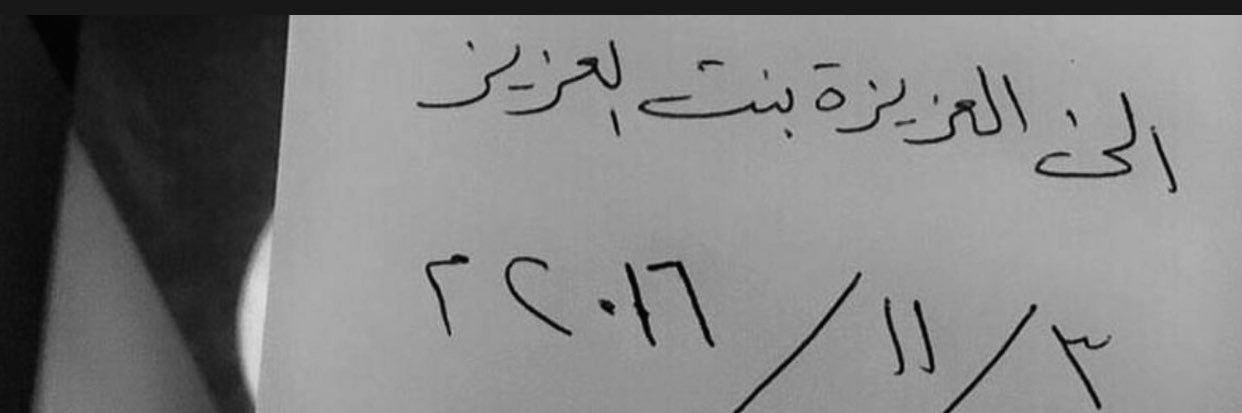 الى العزيزة بنت العزيز
٣ / ١١ / ٢٠١٦ م